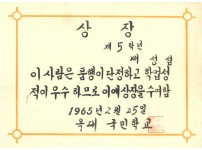 상장
제 5 학년
배성섭
이 사람은 품행이 단정하고 학업성
적이 우수 하므로 이에 상장을 수여함
1965년 2월 25일
옥대 국민학교